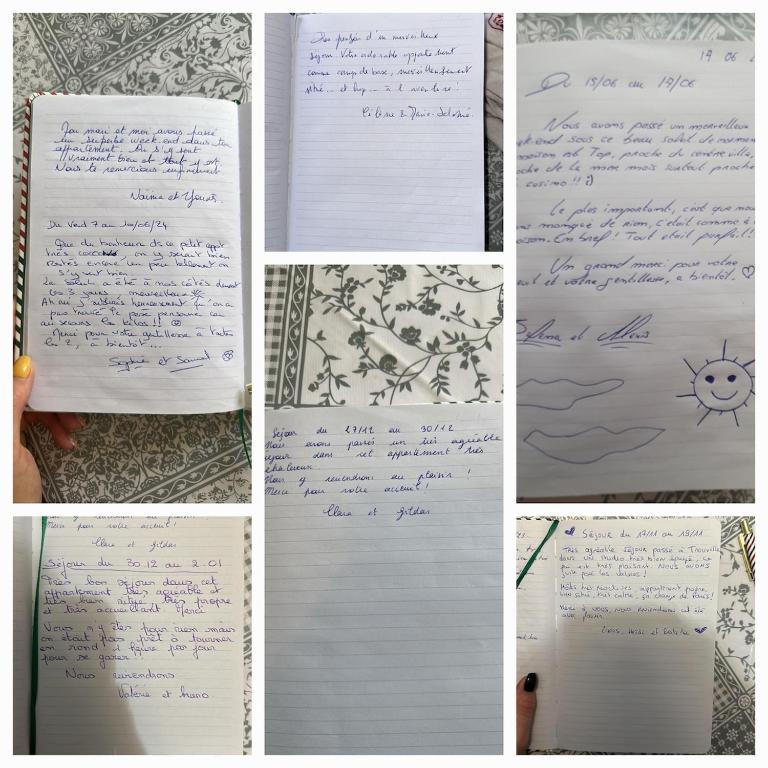 Mon mari et moi avons passé
un superbe week end dans ton
appartement. On s'y sent
vraiment bien et tout y est.
Nous te remercions infiniment
Naïma et
Du Vend 7 au 10/06/24
Que du bonheur ds ce petit appt
très cocoon, on y serait bien
restés encore un peu tellement on
s'y sent bien.
Le soleil a été à nos côtés durant
les 3 jours : merveilleux
Ah oui j'oubliais heureusement qu'on a
pas trouvé le pèse personne car
au secours les kilos !!
Merci pour votre gentillesse à toutes
les 2, à bientôt...
Sophie et Samuel
merveilleux
séjour. Votre adorable appartement
comme camp de base, merveilleusement
situé... et hop... à l'aventure !
17 06
Du 15/06 au 17/06
Nous avons passé un merveilleux
end sous ce beau soleil de
est Top, proche du centre ville,
de la mer mais surtout proche
casino !! :)
Le plus important, c'est que nous
manqué de rien, c'était comme à
Enbref ! Tout était parfait !
Un grand merci pour votre
et votre gentillesse, a bientôt. ♡
et Alexis
Séjour du 27/12 au 30/12
Nous avons passés un très agréable
séjour dans cet appartement très
chaleureux
Nous y reviendrons au plaisir !
Merci pour votre accueil !
Clara et Gildas
Nous y reviendrons au plaisir !
Merci pour votre accueil !
Clara et Gildas
Séjour du 30.12 au 2.01
Très bon séjour dans cet
appartement très agréable et
très bien situé, très propre
et très accueillant. Merci
Vous n'y êtes pour rien mais
on était pas prêt à tourner
en rond 1 heure par jour
pour se garer !!
Nous reviendrons
Valérie et Bruno.
Séjour du 17/11 au 19/11
Très agréable séjour passé à Trouville
dans un studio très bien équipé, ce
qui est très plaisant. Nous avons
appartement propre,
bien situé, très calme ça change de Paris !
Merci à vous, nous reviendrons cet été
avec plaisir